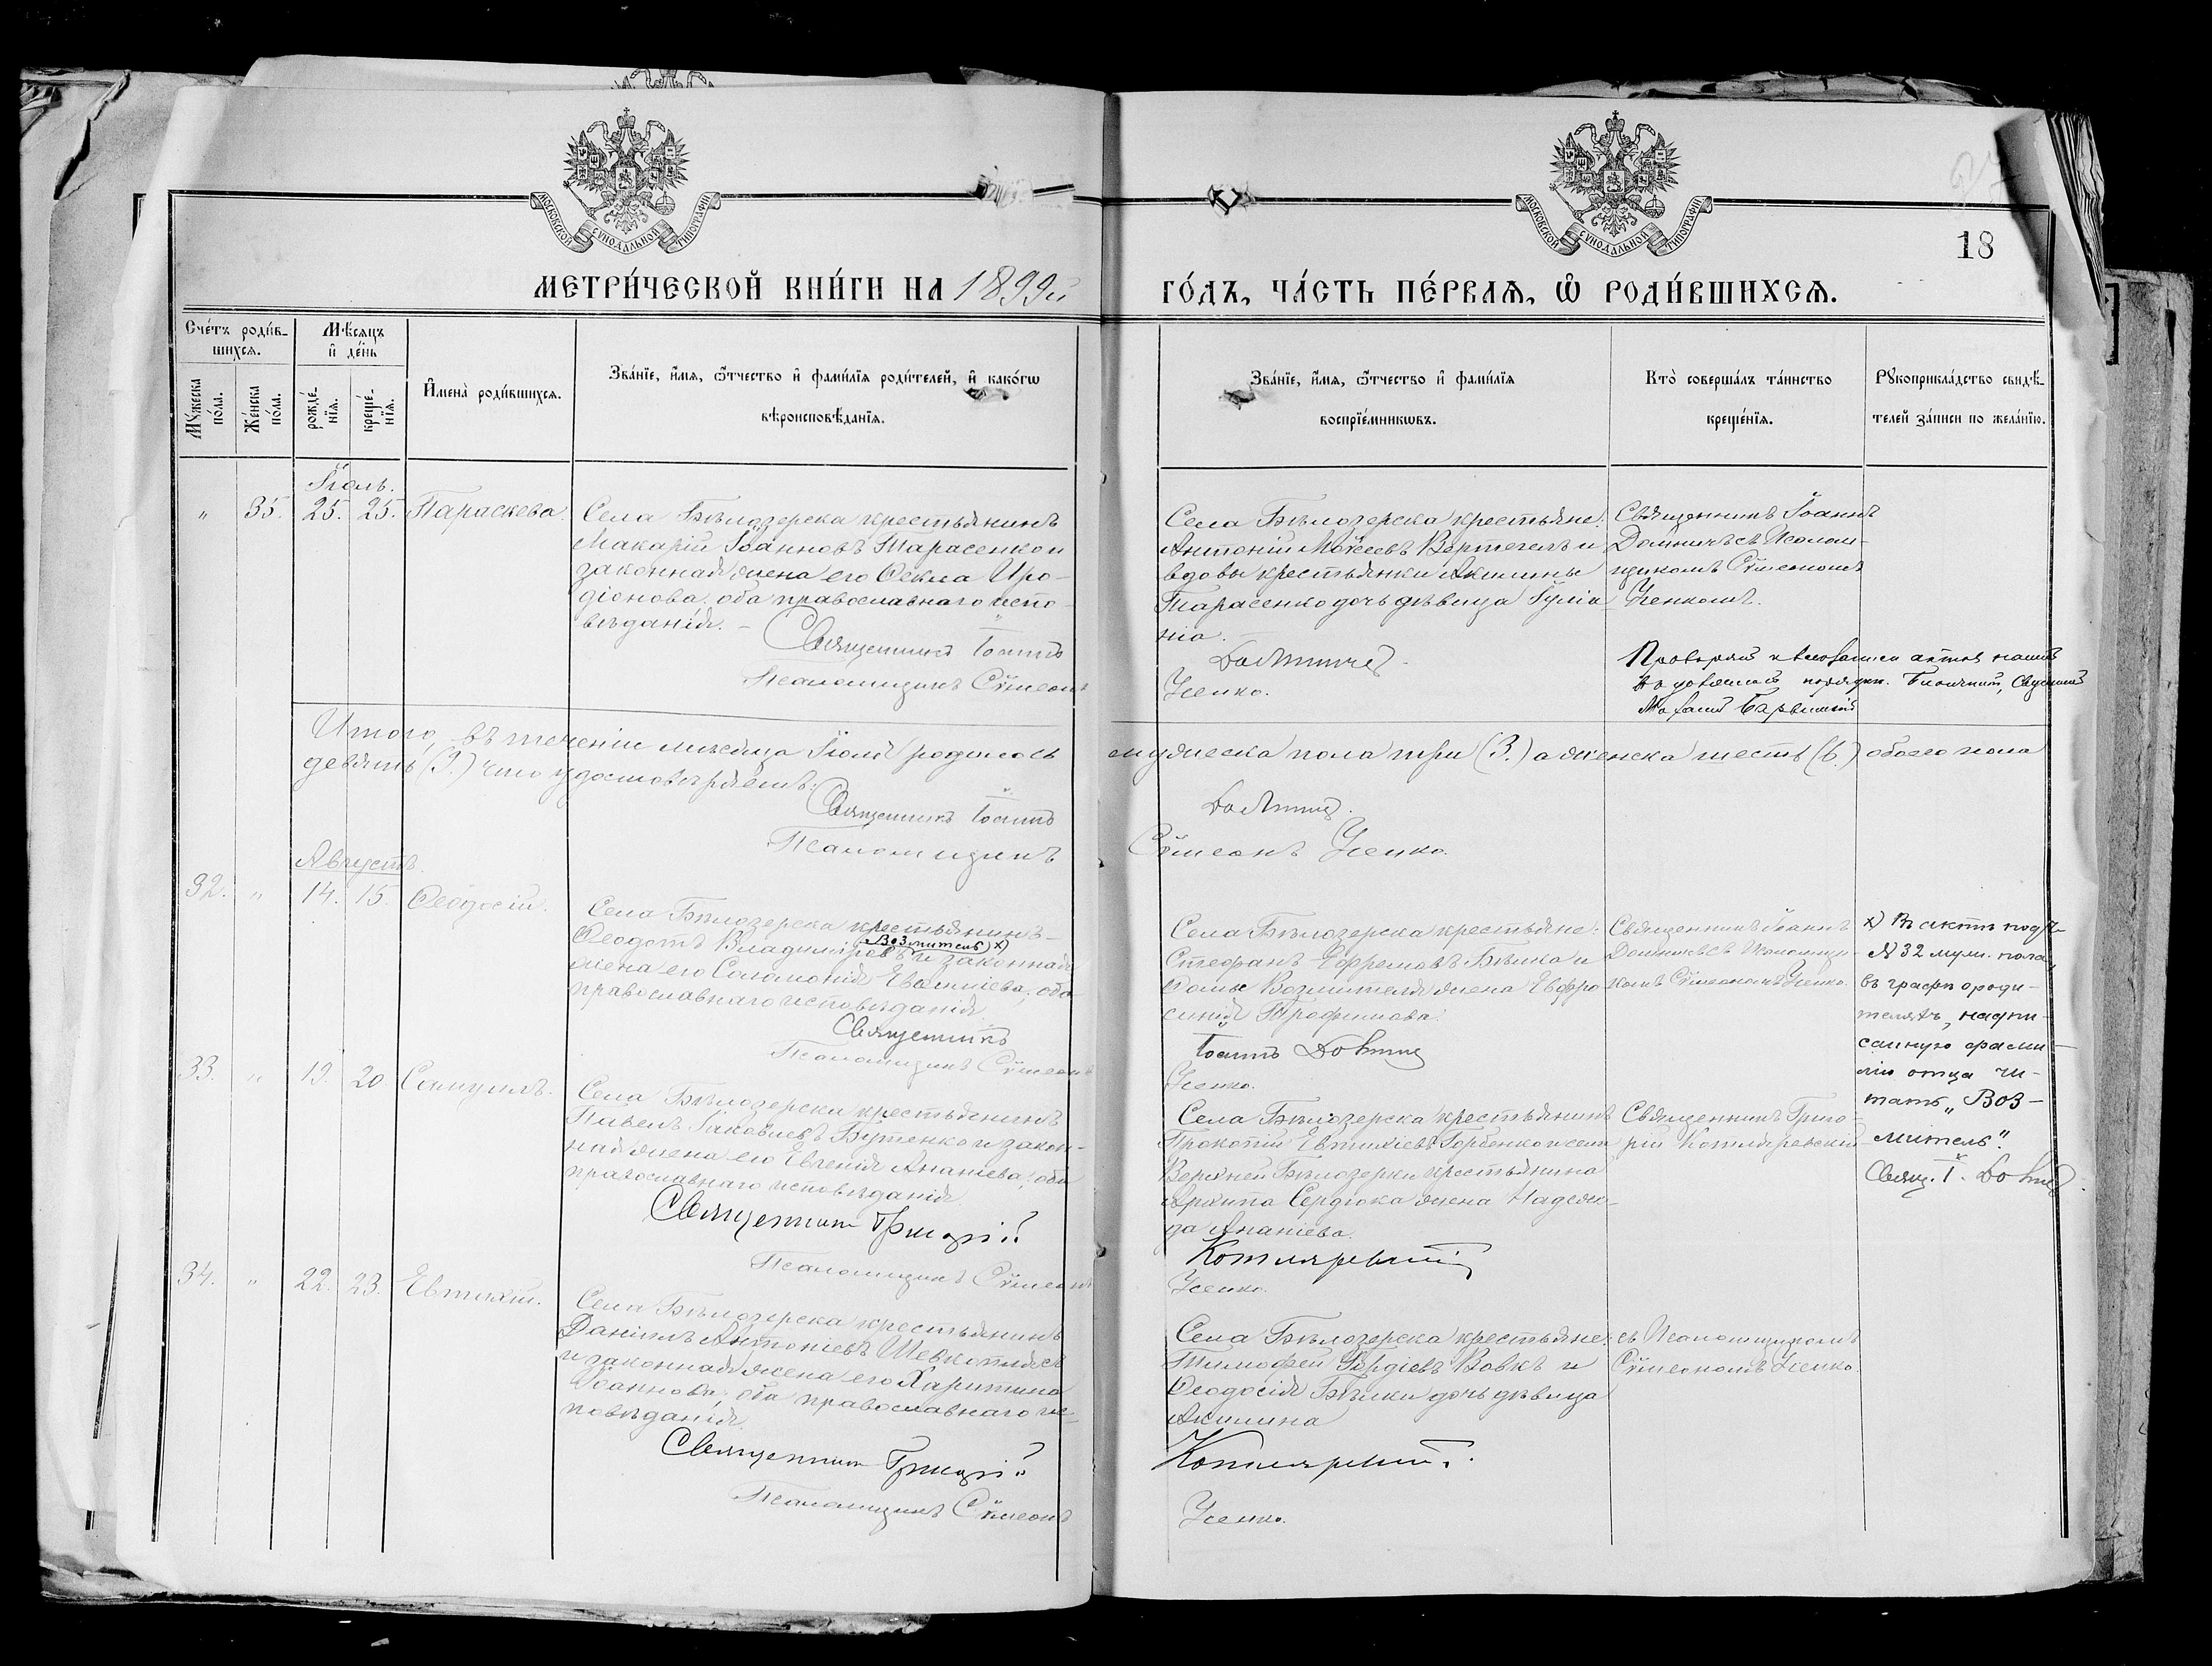 МОСКОВСКОЙ СУНОДАЛЬНОЙ ТИПОГРАФІИ
МОСКОВСКОЙ СУНОДАЛЬНОЙ ТИПОГРАФІИ
18
МЕТРИ́ЧЕСКОЙ КНИ́ГИ НА 1899й
ГО́ДЪ, ЧА́СТЬ ПЕ́РВАЯ, Ѡ РОДИ́ВШИХСЯ.
Сче́тъ роди́в-
шихся.
Мѣ́сяцъ
и҆ де́нь
Мꙋжеска
по́ла.
Же́нска
по́ла.
рожде́-
нїя.
креще́-
нїя.
И҆мена̀ роди́вшихся.
Зва́нїе, и҆́мя, ѻ҆́тчество и҆ фами́лїя роди́телей, и҆ како́гѡ
вѣроисповѣ́данїя.
Зва́нїе, и҆́мя, ѻ҆́тчество и҆ фами́лїя
воспрїе́мникѡвъ.
Кто̀ соверша́лъ та́инство
креще́нїя.
Рꙋкоприкла́дство свидѣ́-
телей за́писи по жела́нїю.
Іюль.
" 35. 25. 25. Параскева.
Села Бѣлозерска крестьянинъ
Макарій Іоанновъ Тарасенко и
законная жена его Ѳекла Иро-
діонова, оба православнаго испо-
вѣданія. –
Священникъ Іоаннъ
Псаломщикъ Сѵмеонъ
Села Бѣлозерска крестьяне:
Антоній Моѵсеевъ Вертегелъ и
вдовы крестьянки Акилины
Тарасенко дочь дѣвица Іуліа
нія.
Усенко.
Священникъ Іоаннъ
съ Псалом-
щикомъ Сѵмеономъ
Усенкомъ.
Итого въ теченіи мѣсяца Іюля родилось
мужеска пола три (3.) а женска шесть (6.) обоего пола
девять (9.) что удостовѣряемъ:
Священникъ Іоаннъ
Псаломщикъ
Сѵмеонъ Усенко.
Августъ.
32. " 14. 15. Ѳеодосій.
Села Бѣлозерска крестьянинъ
Возмитель х)
Ѳеодотъ Владиміровъ и законная
жена его Соломонія Евѳиміева, оба
православнаго исповѣданія.
Священникъ
Псаломщикъ Сѵмеонъ
Села Бѣлозерска крестьяне:
Стефанъ Ефремовъ Бѣлка и
Ѳомы Возмителя жена Евфро
синія Трофимова.
Іоаннъ
Усенко.
Священникъ Іоаннъ
съ Псаломщи-
комъ Сѵмеономъ Усенко.
х) Въ актѣ подъ
№ 32 муж. пола,
въ графѣ о роди-
теляхъ, надпи-
санную фами-
лію отца чи-
тать „Воз-
митель".
Свящ. І.
33. " 19. 20. Самуилъ.
Села Бѣлозерски крестьянинъ
Павелъ Іаковлевъ Бутенко и закон-
ная жена его Евгенія Ананіева, оба
православнаго исповѣданія
Священникъ Григорій
Псаломщикъ Сѵмеонъ
Села Бѣлозерска крестьянинъ
Прокопій Евтихіевъ Горбенко и села
Верхней Бѣлозерки крестьянина
Архипа Сердюка жена Надеж-
да Ананіева.
Котляревскій
Усенко.
Священникъ Григо-
рій Котляревскій
34. " 22. 23. Евтихій.
Села Бѣлозерска крестьянинъ
Даніилъ Антоніевъ Шевкоплясъ
и законная жена его Харитина
Іоаннова, оба православнаго ис-
повѣданія.
Священникъ Григорій
Псаломщикъ Сѵмеонъ
Села Бѣлозерска крестьяне:
Тимофей Гордіевъ Вовкъ и
Ѳеодосія Бѣлки дочь дѣвица
Акилина
Котляревскій.
Усенко.
съ Псаломщикомъ
Сѵмеономъ Усенко.